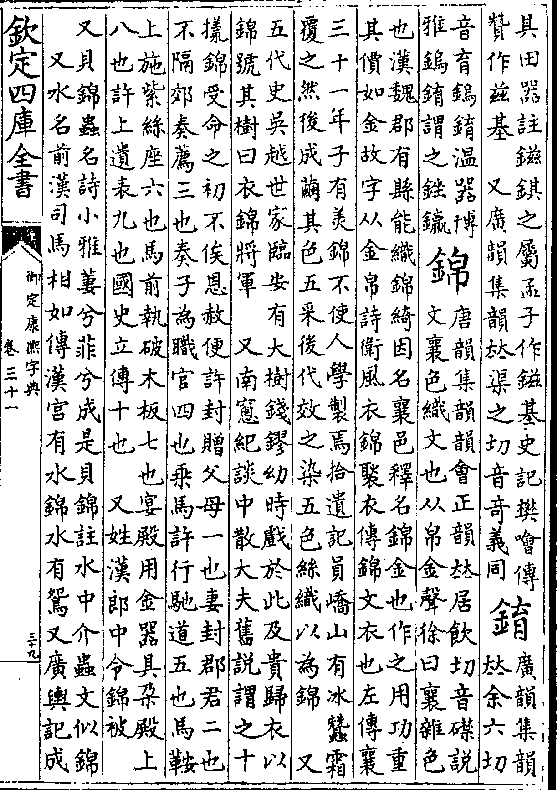 其田器註鎡錤之屬孟子作鎡基史記樊噲傳
贊作兹基　又廣韻集韻𠀤渠之切音奇義同　錥　廣韻集韻𠀤余六切
音育鎢錥温器博雅鎢錥謂之銼鑹　錦　唐韻集韻韻會正韻𠀤居飲切音磼說
文襄色織文也从帛金聲徐曰襄雜色
也漢魏郡有縣能織錦綺因名襄邑釋名錦金也作之用功重
其價如金故字从金帛詩衛風衣錦褧衣傳錦文衣也左傳襄
三十一年子有美錦不使人學製焉拾遺記員嶠山有冰蠶霜
覆之然後成繭其色五采後代效之染五色絲織以為錦　又
五代史吳越世家臨安有大樹錢鏐幼時戲於此及貴歸衣以
錦號其樹曰衣錦將軍　又南窻紀談中散大夫舊說謂之十
㨾錦受命之初不俟恩赦便許封贈父母一也妻封郡君二也
不隔郊奏薦三也奏子為職官四也乘馬許行馳道五也馬鞍
上施紫絲座六也馬前執破木板七也宴殿用金器具朶殿上
八也許上遺表九也國史立傳十也　又姓漢郎中令錦被
又貝錦蟲名詩小雅萋兮菲兮成是貝錦註水中介蟲文似錦
又水名前漢司馬相如傳漢宮有水錦水有鴛又廣輿記成
欽定四庫全書
御定康熙字典
卷三十一
三十九